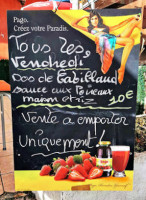 Pago.
Créez votre Paradis.
Tous les
Vendredi
Dos de Cabillaud
sauce aux Poireaux
maison et riz 10€
Vente a emporter
Uniquement!